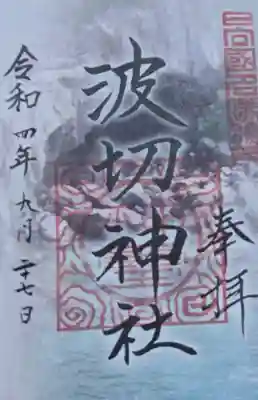 奉拝
波切神社
令和四年九月二十七日